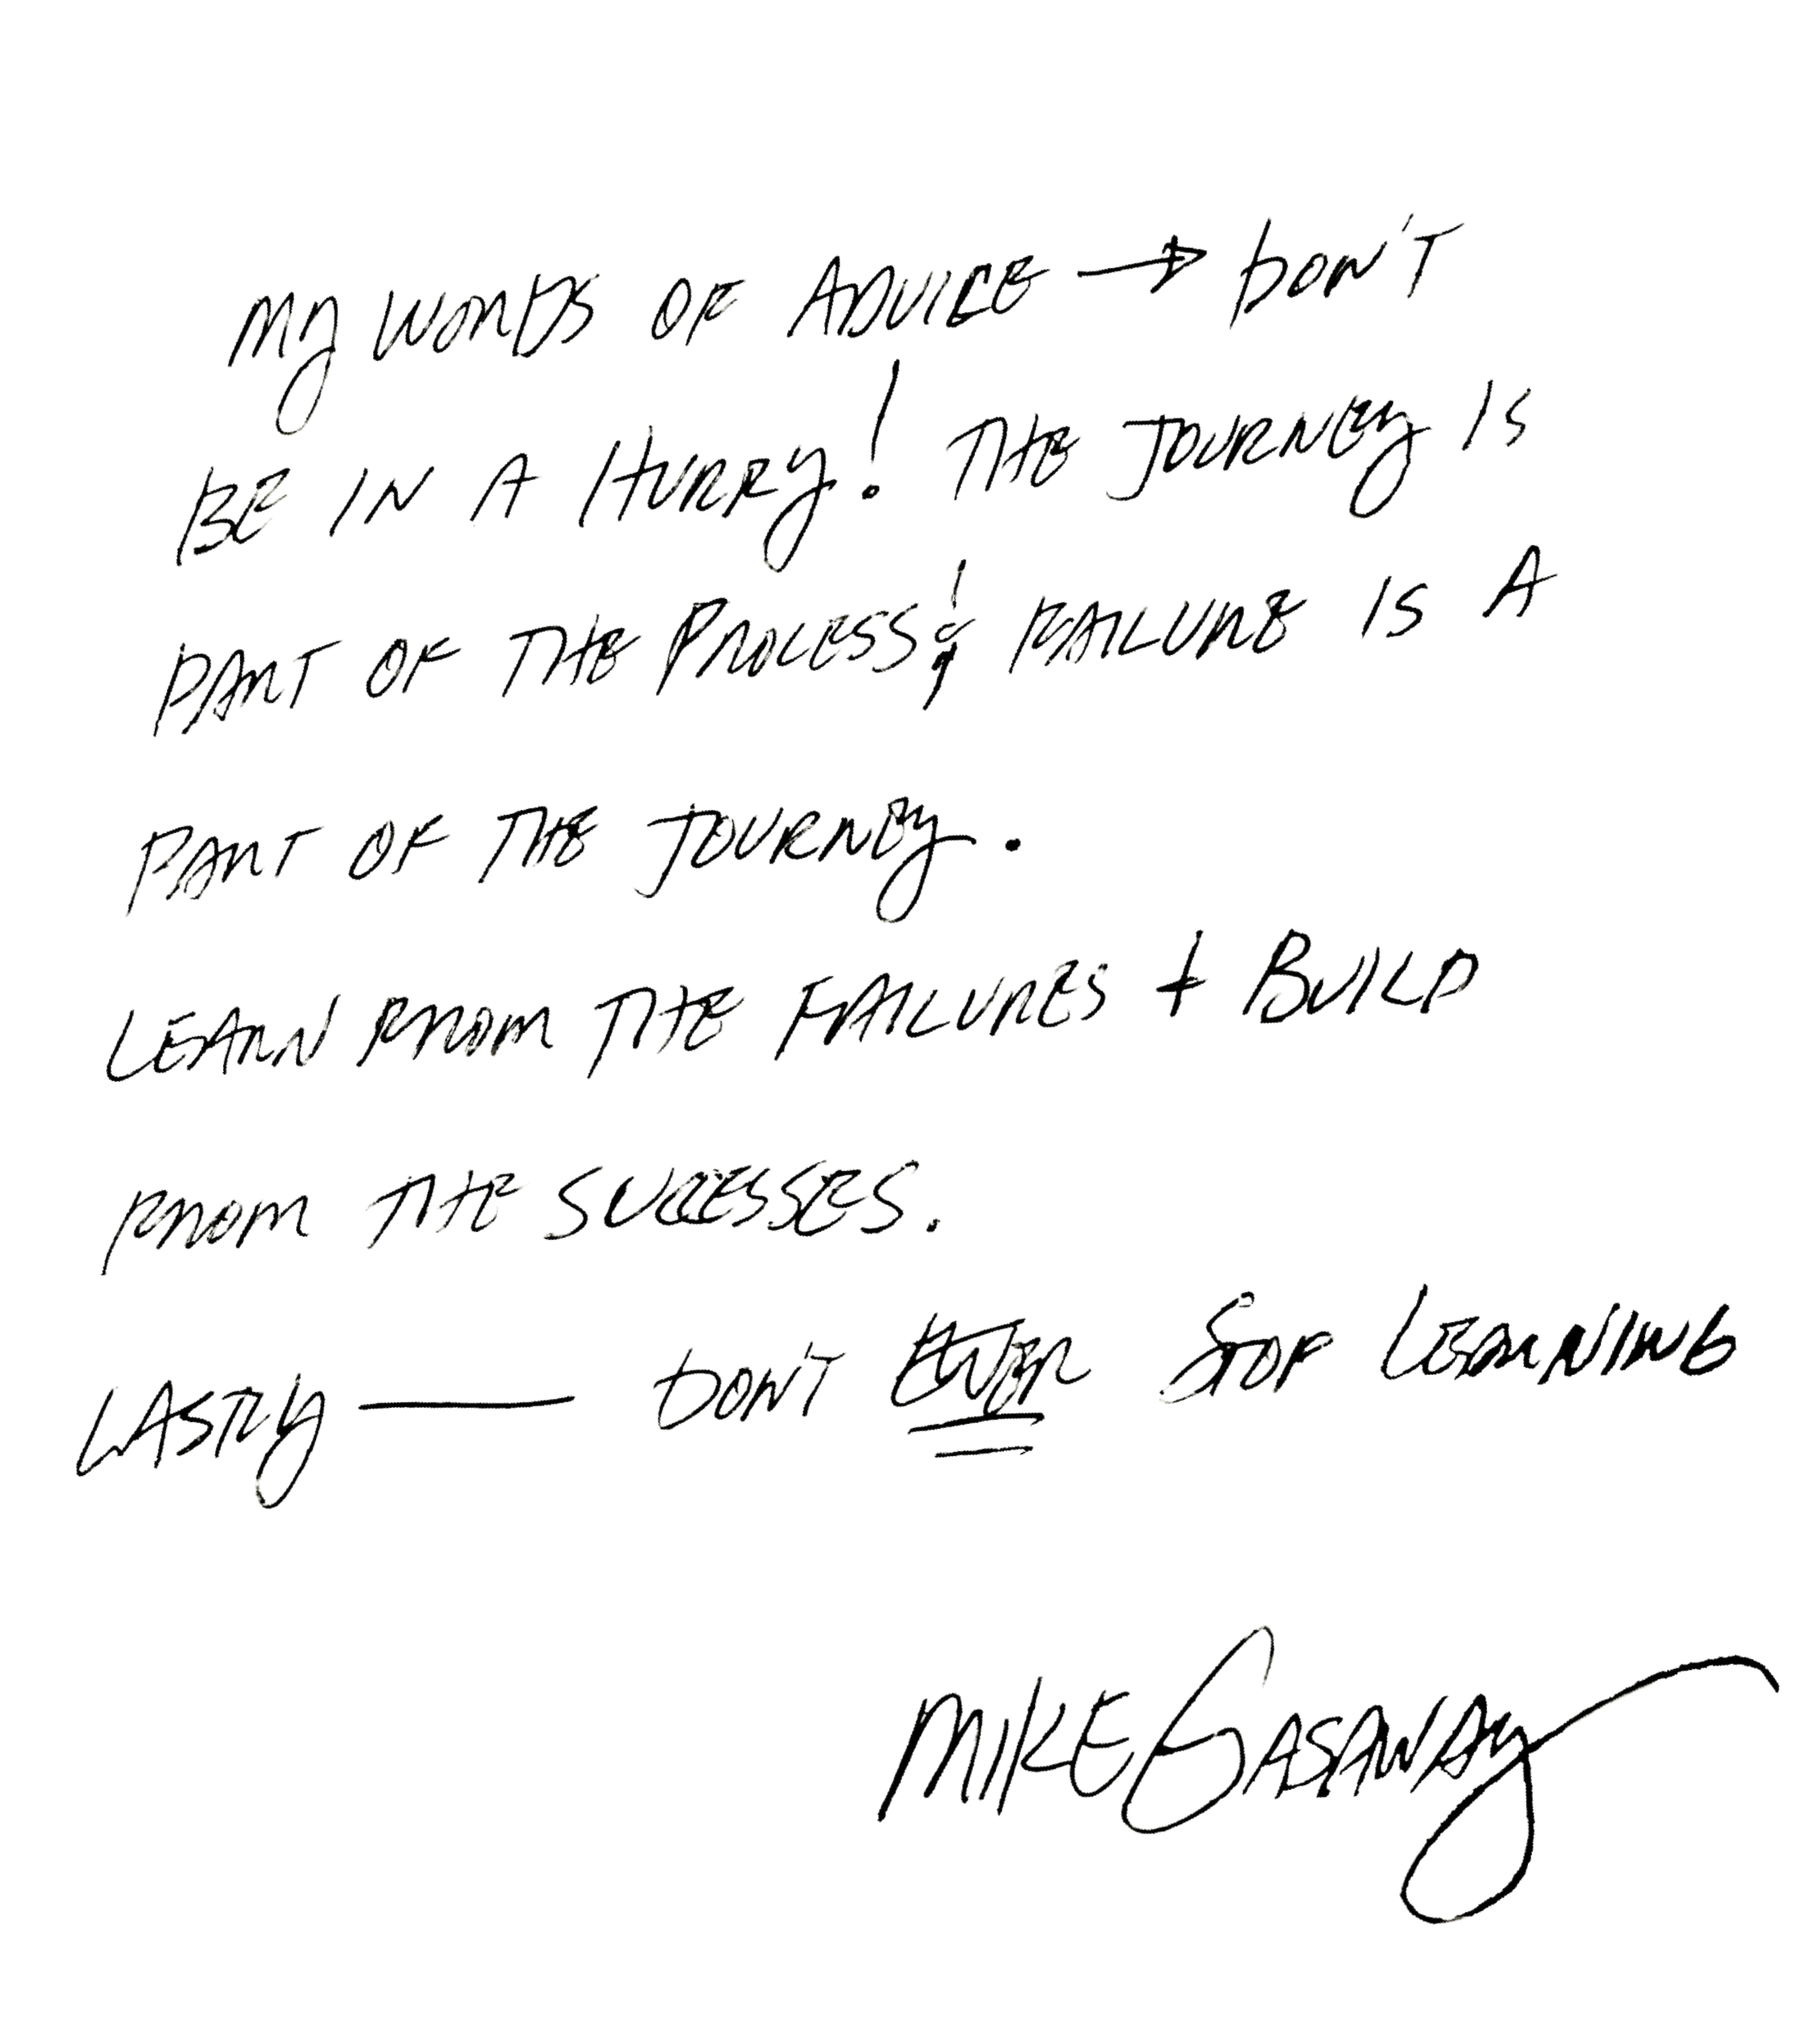 MY WORDS OF ADVICE → DON'T
BE IN A HURRY! THE JOURNEY IS
PART OF THE PROCESS & FAILURE IS A
PART OF THE JOURNEY.
LEARN FROM THE FAILURES + BUILD
FROM THE SUCCESSES.
LASTLY — DON'T EVER STOP LEARNING
MIKE GASAWAY